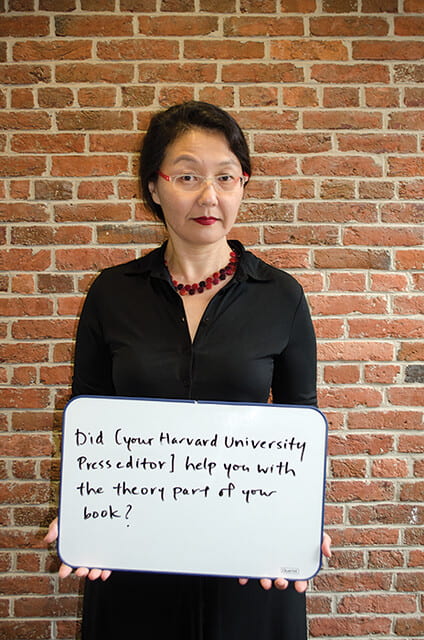 Did [your Harvard University
Press editor] help you with
the theory part of your
book?
Quartet